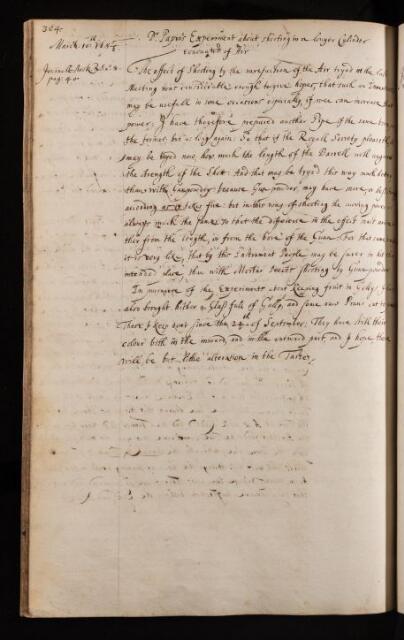 364.
March 10th 168
Dr Papin's Experiment about shooting in a longer Cylinder
evacuated of Air
Journall Book
pag: 40
The effect of Shooting by the rarefaction of the Air tryed at the last
Meeting was considerable enough to give hopes, that such an
may be usefull in some occasions especially, if wee can increase that
power; I have therefore prepared another Pipe of the same bore
the former but as long again: So that if the Royall Society please
may be tryed now, how much the length of the Barrell will
the strength of the Shot: And that may be tryed this way much better
than with Gunpowder, because Gunpowder, may have more or less
according as it takes fire but in this way of shooting the moving power
always much the same, so that the difference in the effect must
ther from the length, or from the bore of the Gunn. For that
it is very like, that by this Instrument People may be surer to hit the
intended place, than with Mortar Peeces shooting by Gunpowder.
In pursuance of the Experiment about Keeping fruit in Gelly: I
also brought hither a Glass full of Gelly, and some raw Prunes cut
There I keep ever since the 24th of September; They have still their
colour both in the inward, and in the outward part, and I hope there
will be but little alteration in the Taste.